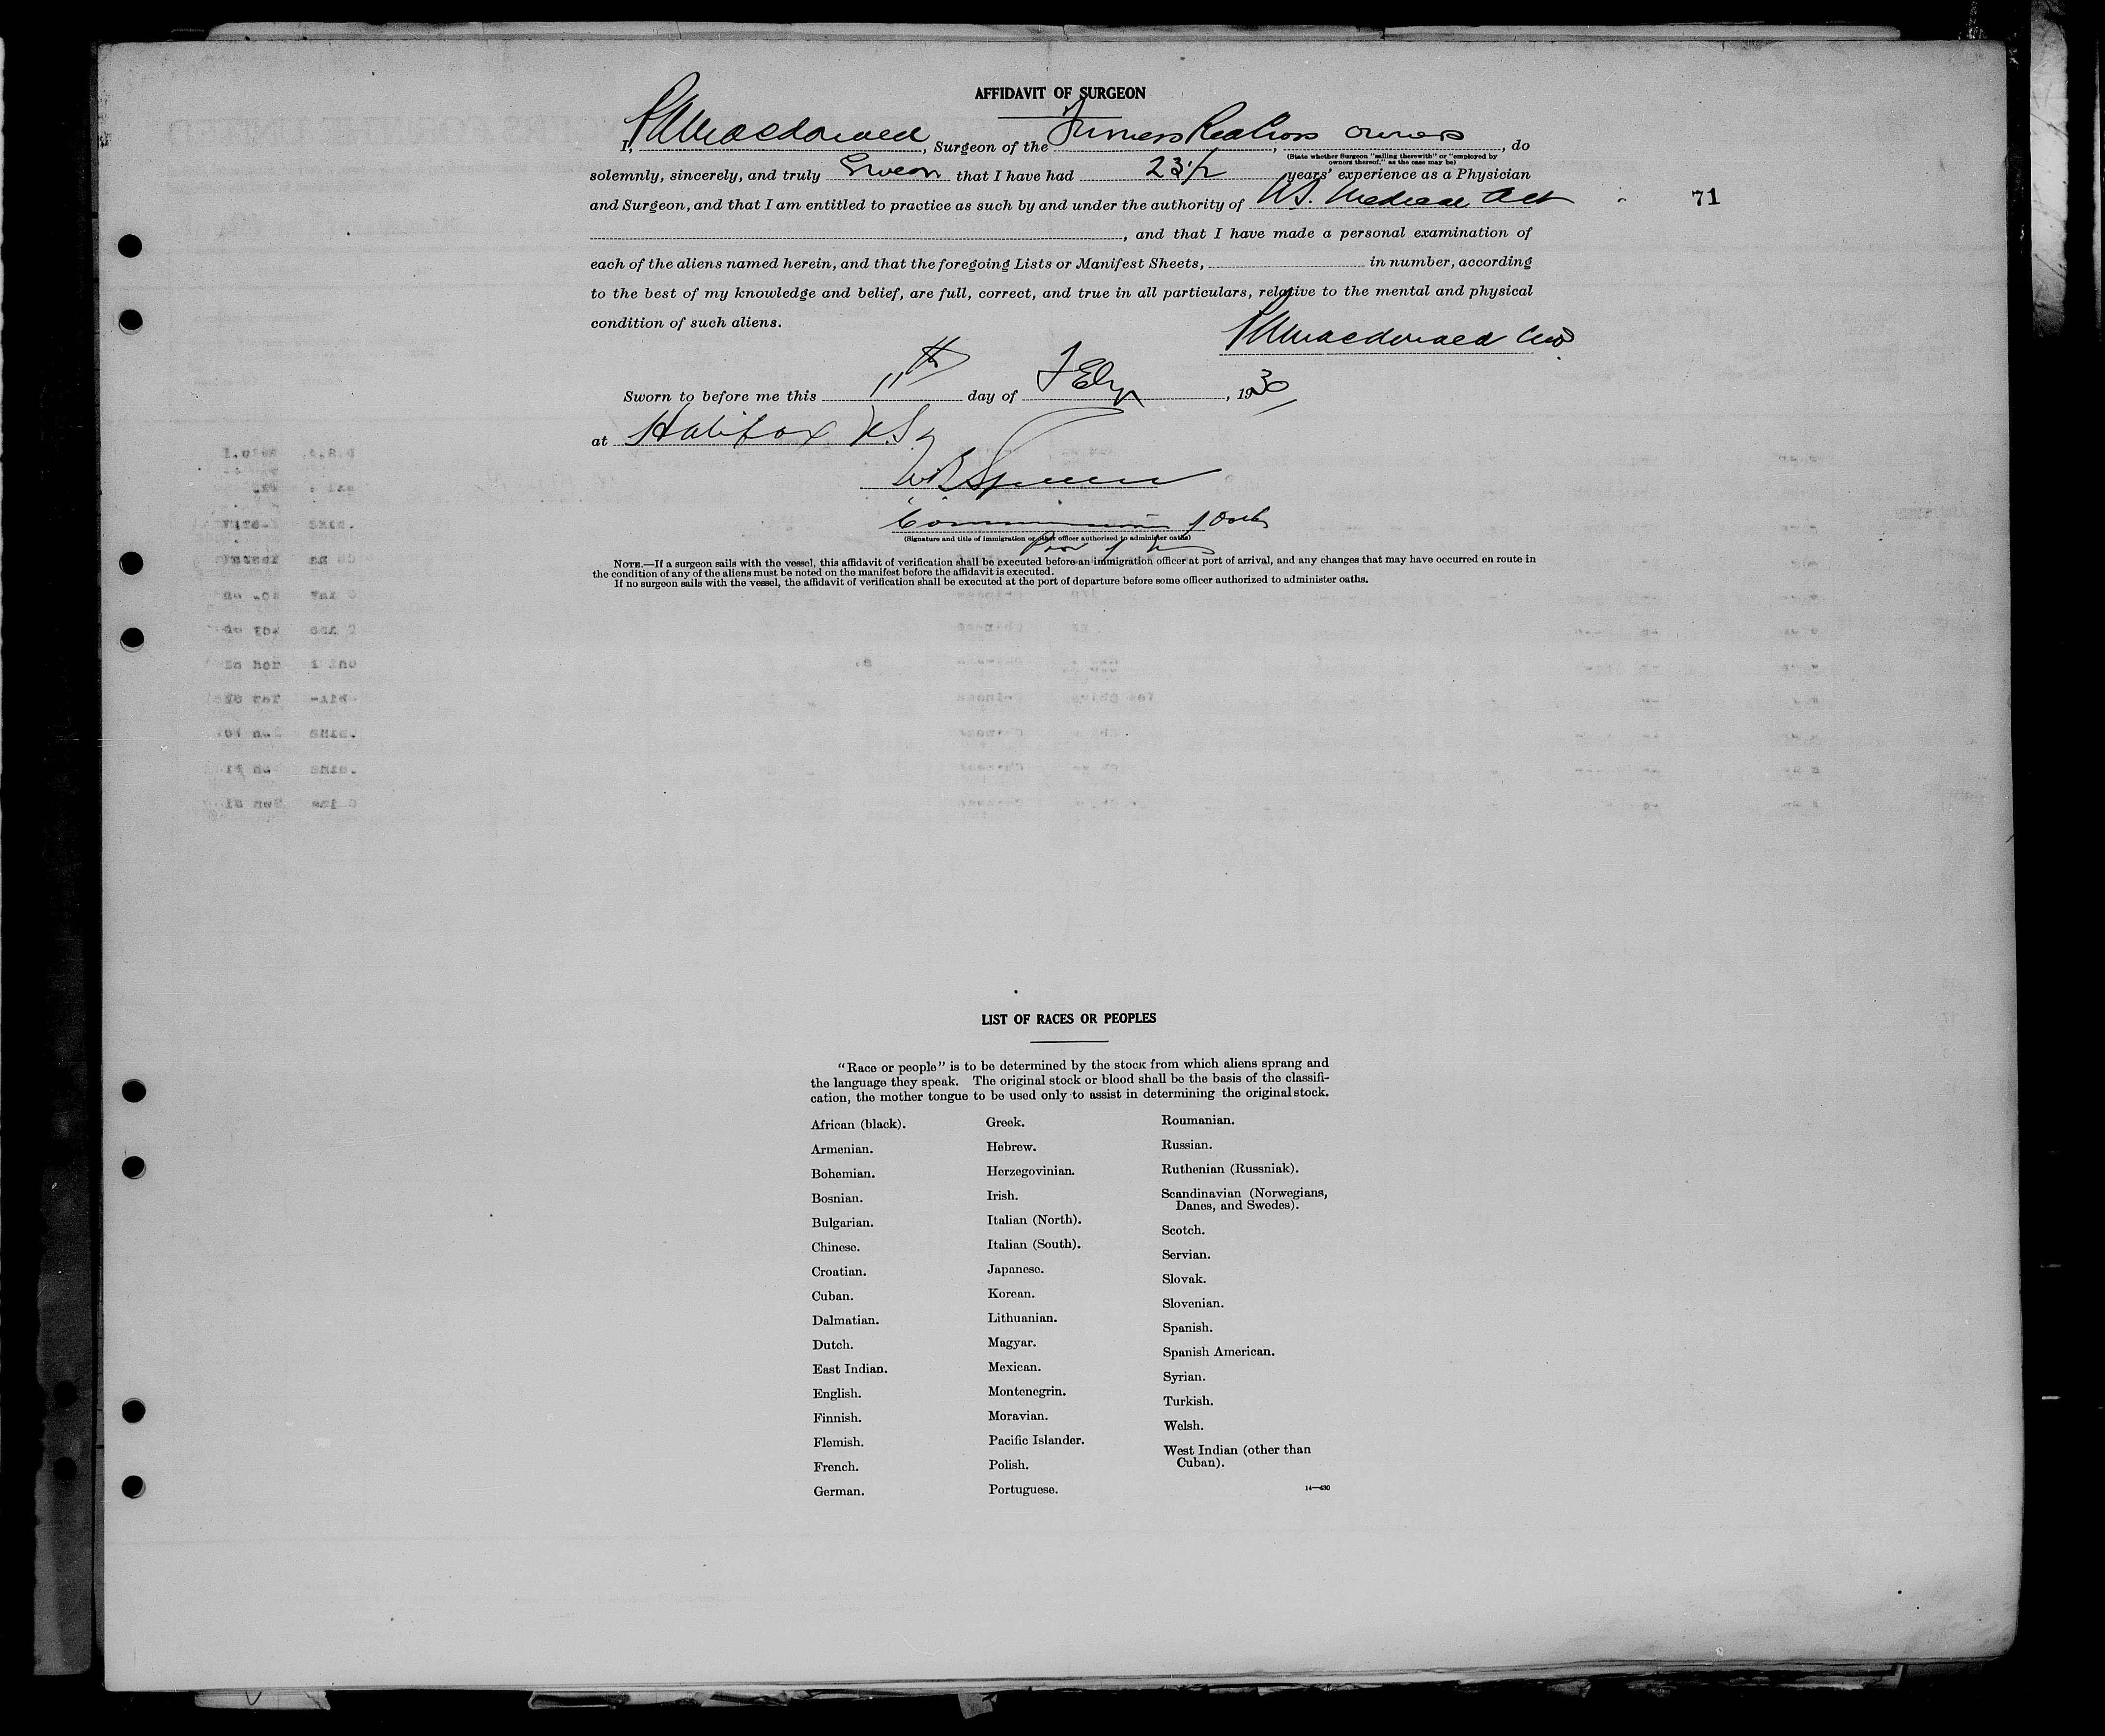 AFFIDAVIT OF SURGEON
I, Macdonald, Surgeon of the Furness Red Cross, owners, do
(State whether Surgeon "sailing therewith" or "employed by
owners thereof," as the case may be)
solemnly, sincerely, and truly Swear that I have had 23½ years' experience as a Physician
and Surgeon, and that I am entitled to practice as such by and under the authority of N.S. Medical Act
71
, and that I have made a personal examination of
each of the aliens named herein, and that the foregoing Lists or Manifest Sheets, in number, according
to the best of my knowledge and belief, are full, correct, and true in all particulars, relative to the mental and physical
condition of such aliens.
Macdonald
Sworn to before me this 11th day of Feby, 1930
at Halifax N.S.
(Signature and title of immigration or other officer authorized to administer oaths)
NOTE.—If a surgeon sails with the vessel, this affidavit of verification shall be executed before an immigration officer at port of arrival, and any changes that may have occurred en route in
the condition of any of the aliens must be noted on the manifest before the affidavit is executed.
If no surgeon sails with the vessel, the affidavit of verification shall be executed at the port of departure before some officer authorized to administer oaths.
LIST OF RACES OR PEOPLES
"Race or people" is to be determined by the stock from which aliens sprang and
the language they speak. The original stock or blood shall be the basis of the classifi-
cation, the mother tongue to be used only to assist in determining the original stock.
African (black).
Armenian.
Bohemian.
Bosnian.
Bulgarian.
Chinese.
Croatian.
Cuban.
Dalmatian.
Dutch.
East Indian.
English.
Finnish.
Flemish.
French.
German.
Greek.
Hebrew.
Herzegovinian.
Irish.
Italian (North).
Italian (South).
Japanese.
Korean.
Lithuanian.
Magyar.
Mexican.
Montenegrin.
Moravian.
Pacific Islander.
Polish.
Portuguese.
Roumanian.
Russian.
Ruthenian (Russniak).
Scandinavian (Norwegians,
Danes, and Swedes).
Scotch.
Servian.
Slovak.
Slovenian.
Spanish.
Spanish American.
Syrian.
Turkish.
Welsh.
West Indian (other than
Cuban).
14—430